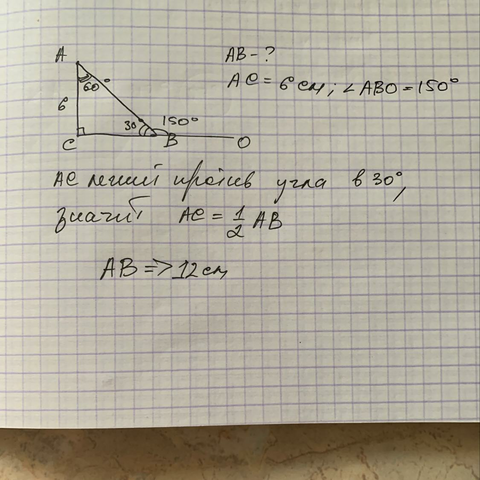 AB - ?
AC = 6 см; ∠ABO = 150°
A
60°
6
30
150°
C
B
O
AC лежит против угла в 30°,
значит AC = 1/2 AB
AB => 12 см